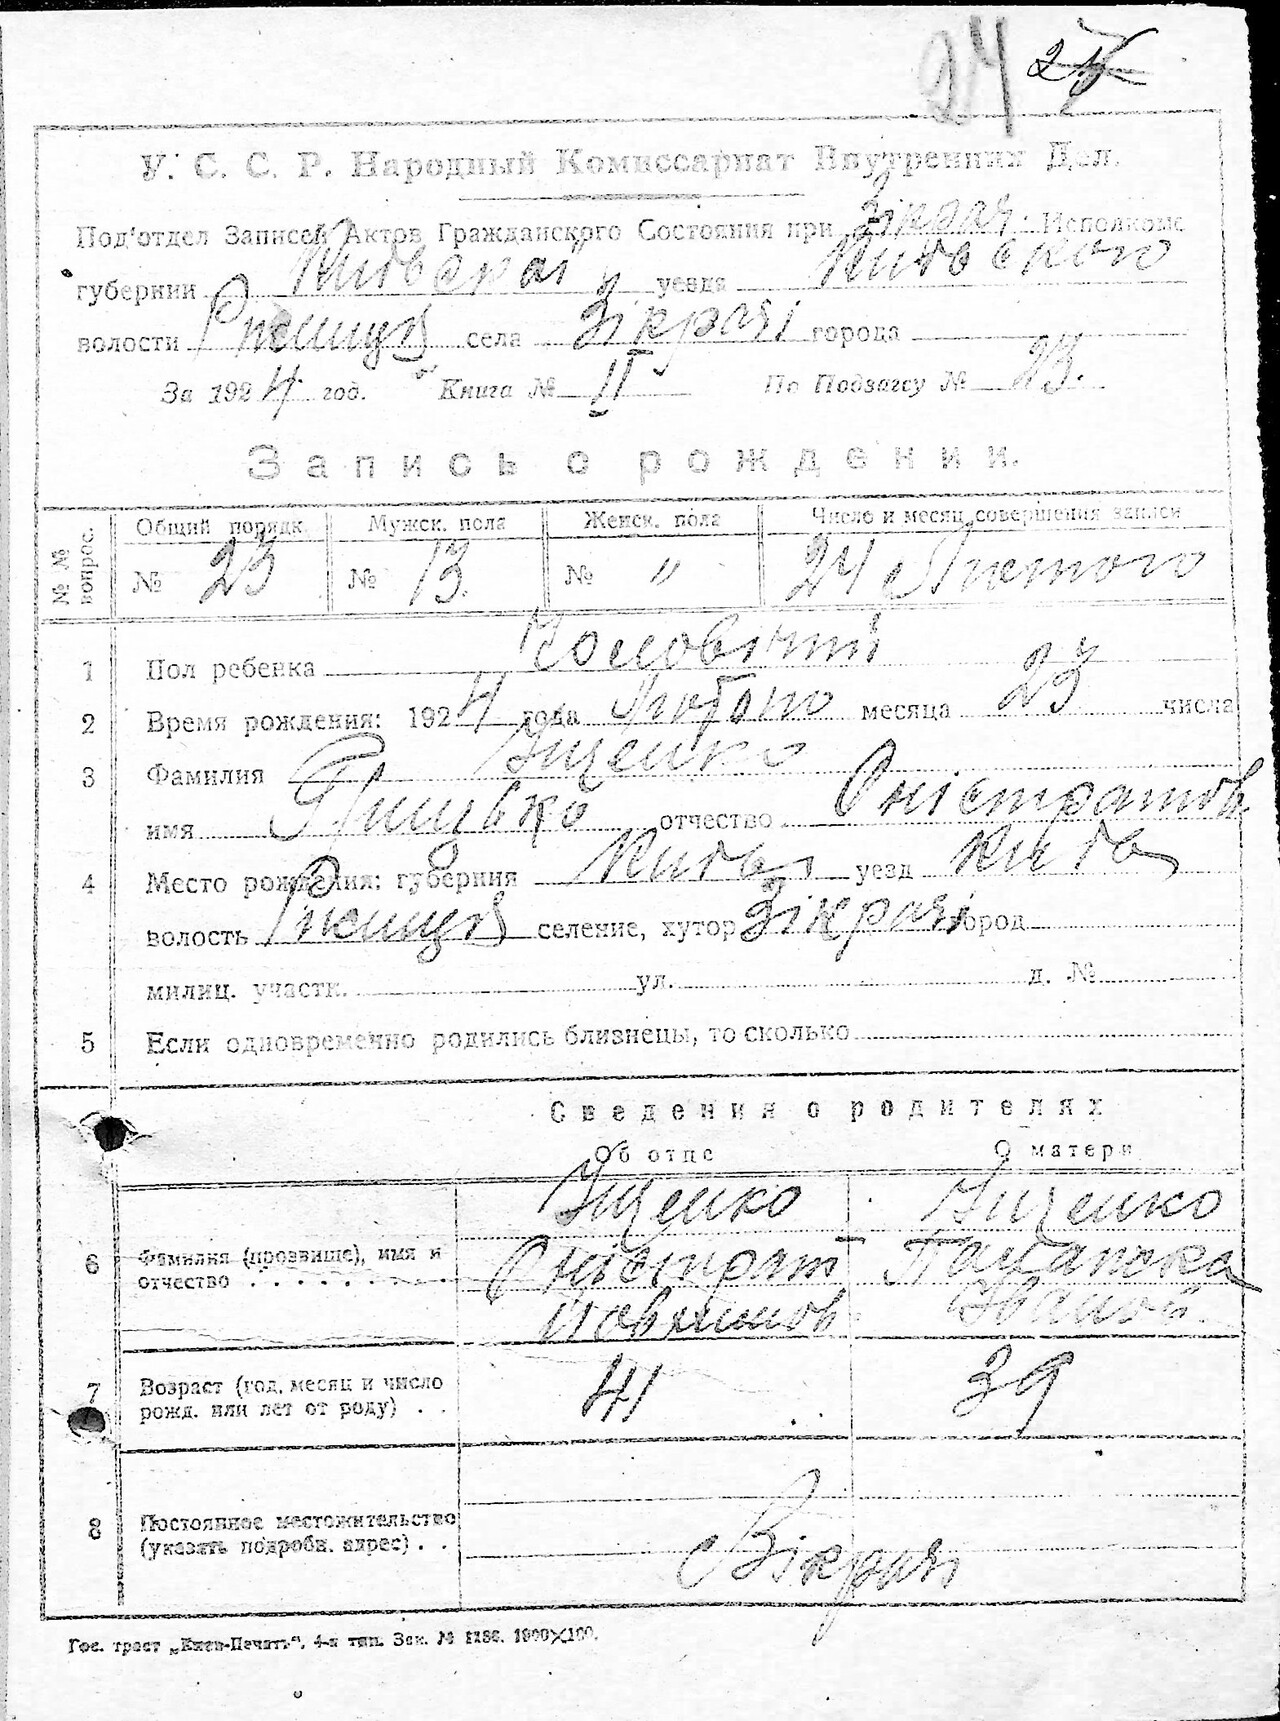 24 24
У. С. С. Р. Народный Комиссариат Внутренних Дел.
Под'отдел Записей Актов Гражданского Состояния при Зікрач. Исполкоме
губернии Київської уезда Київського
волости Ржищів села Зікрачі города
За 1924 год. Книга № II По Подзагсу № 23.
Запись о рождении.
№ № вопрос. Общий порядк. Мужск. пола Женск. пола Число и месяц совершения записи
№ 23 № 13. № " 24 Лютого
1 Пол ребенка Чоловічий
2 Время рождения: 1924 года Лютого месяца 23 числа
3 Фамилия Іщенко
имя Грицько отчество Оністратов
4 Место рождения: губерния Київ уезд Київ
волость Ржищів селение, хутор Зікрачі город
милиц. участк. ул. д. №
5 Если одновременно родились близнецы, то сколько
Сведения о родителях
Об отце О матери
Іщенко Іщенко
6 Фамилия (прозвище), имя и отчество Оністрат
7 Возраст (год, месяц и число рожд. или лет от роду) . . 41 39
8 Постоянное местожительство (указать подробн. адрес) . . Зікрачі
Гос. трест „Киев-Печать“, 4-я тип. Зак. № 1186. 1000×100.